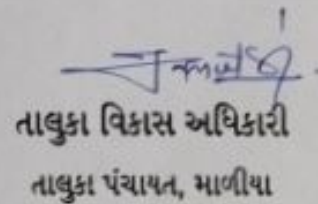 તાલુકા વિકાસ અધિકારી
તાલુકા પંચાયત, માળીયા